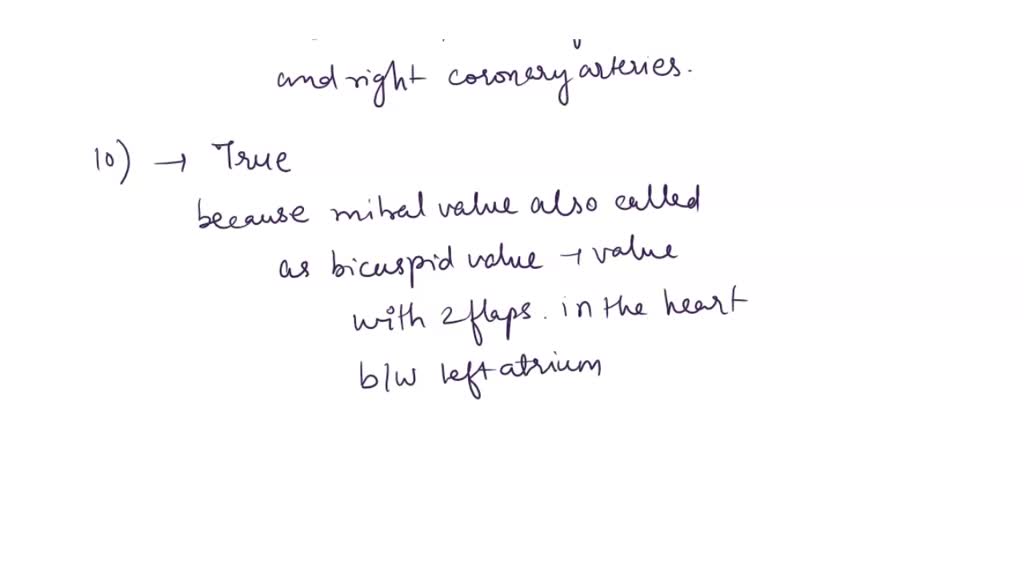 and right coronary arteries.
10) → True
because mitral value also called
as bicuspid value → value
with 2 flaps. in the heart
b/w left atrium